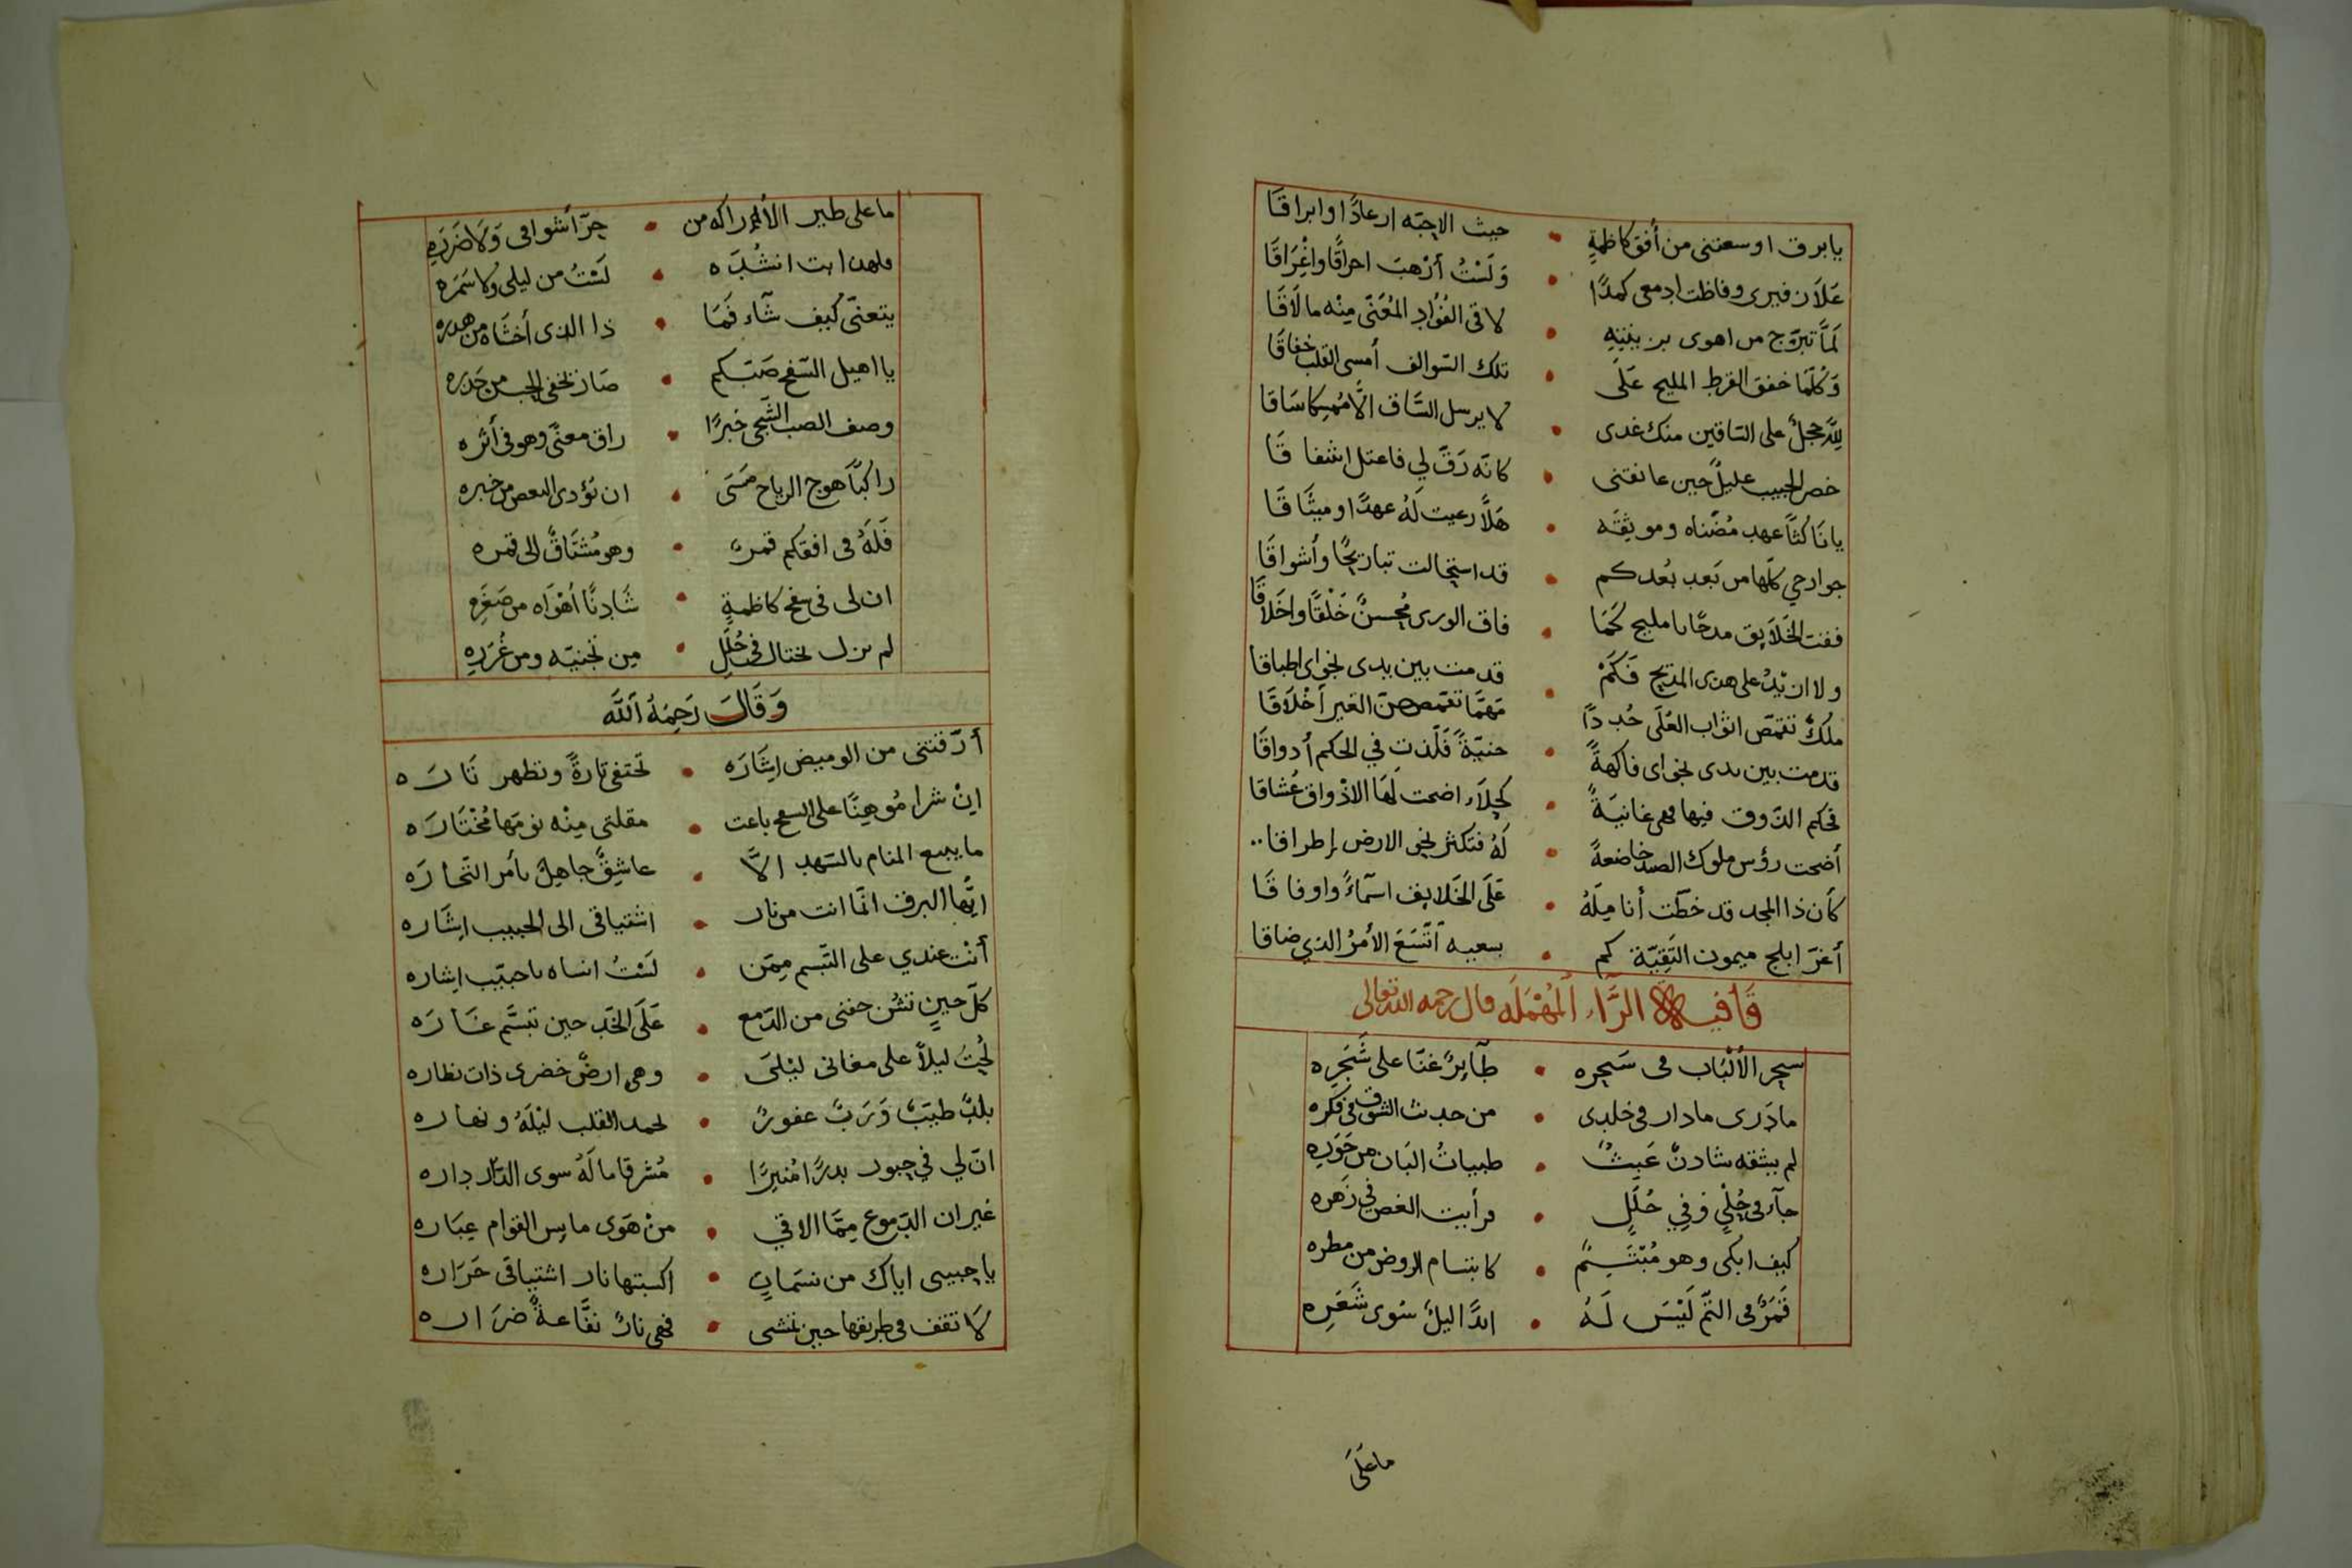 يابرق اوسعتنى من أفق كاظمةٍ • حيث الاحبّه ارعادًا وابراقَا
عَلَاَ زفيرى وفاظت ادمعى كمدًا • وَلَسْتُ أرْهبَ احراقًا واغْرَاقَا
لمَّا تبرّج من اهوى بزينتِهِ • لاقى الفُؤاد المُعَنّى مِنْه مالَاقَا
وَكُلّمَا خفق القرط المليح عَلَى • تلك السّوالف أمسى القلب خفاقَا
لِلّه حجلٌ على السّاقين منك غدى • لا يرسل السّاق الَّا مُمسِكا سَاقا
خصر الحبيب عليلٌ حين عانقنى • كانّه رَقّ لِي فاعتل اشفاقَا
يا نَاكثًا عهد مُضْناه وموثِقَه • هَلَّا رعيت لَهُ عهدًا وميثَاقَا
جوارحي كلّها من بَعد بُعدكم • قد استحالت تباريحًا وأشواقَا
ففت الخَلَايق مدحًا يا مليح كَمَا • فاق الورى مُحسنٌ خَلْقًا واخَلَاقَا
ولا ان يْدٌ على هذى المديح فَكَمْ • قدمت بين يدى نجواى اطباقا
مَلْكٌ تقمّصَ اثواب العُلَى جُددًا • مَهمَّا تقمّصهنّ الغير أخْلَاقَا
قدمت بين يدى نجواى فاكهةً • جنيّةً فَلّذتِ فِي الحكم أذواقَا
فحكم الذّوق فيها فهى غانيَةٌ • كَحِلَآء اضحت لَهَا الاذْواق عُشاقا
أضحت رؤس ملوك الصيد خاضعةً • لَهُ فتكثر نحو الارض إطراقا
كأن ذا المجد قد خطّت أنامِلَهُ • عَلَى الخَلايف اسمآءً واوفاقَا
أغرّ ابلج ميمون النَّقِيّة كم • بسعيه اتّسَعَ الأمرُ الذي ضاقا
قَافيه الرَّآء المُهْمَلَه قال رحمه الله تعالى
سحر الألْبَاب فى سَحِره • طآيرٌ غنّا على شَجَرِه
مادَرى مادار فى خلدى • من حدث الشوق فى فكره
لم يشقه شادنٌ عَبِثٌ • ظبياتُ البَان من حَوَرِهِ
جآء فى حُلْيٍ وفِي حُلَلٍ • فرأيت الغصن فى زهره
كيف ابكى وهو مُبْتَسِمٌ • كابتسام الروض من مطره
قَمَرٌ فى التّم لَيْسَ لَهُ • ابدًا ليلٌ سُوى شَعَرِه
ماعَلَى
ما على طير الأراكه من • حرّ أشواقى وَلَا ضَرَرِهِ
• لَسْتُ من ليلى ولا سَمَره
يتعنّى كيف شآء فَمَا • ذا الذى أخشَاه من هدره
يا اهيل السّفح صَبّكم • صَار يخفى الحب من حَذره
وصف الصب الشّجى خبرًا • راق معنّى وهو فى أثره
راكبًا هوج الرياح عَسَى • ان تؤدى البعض من خبره
فَلَهُ فى افقكم قمرٌ • وهو مُشْتَاقٌ الى قمره
ان لى فى سفح كاظمةٍ • شَادِنًا أهْوَاه من صَغَرِهِ
لم يزل يختال فى حُلَلٍ • مِن تجنيّه ومن غُرَرِهِ
وَقَالَ رَحِمَهُ اللَّه
أرّقتنى من الوميض اِشَارَه • تختفى تارةً وتظهر تَارَه
اِنْ شرا مُوهِنًا على السفح باعت • مقلتى مِنْه نومَهَا مُخْتَارَه
ما يبيع المنام بالسّهد الاَّ • عاشِقٌ جاهِلٌ بأمر التّجارَه
ايّها البرق انّما انت من نار • اشتياقى الى الحبيب اِشَاره
أنْت عندي على التبسم مِمّن • لَسْتُ انساه يا حبيّب اِشاره
كلّ حينٍ تشُن جفنى من الدّمع • عَلَى الخّد حين تبسَّم غَارَه
لُحْتَ ليلاً على مغانى ليْلَى • وهى ارضٌ خضرى ذات نظاره
بلدٌ طيّبٌ وَرَبٌ غفورٌ • يحمد القلب ليْلَهُ ونهاره
انّ لي في حبور بدرًا مُنيرًا • مُشرقا ما لَهُ سوى الدّار داره
غير ان الدّموع مِمّا الاقي • مِنْ هَوَى مايس القوام عِبَاره
يا حبيبى اياك من نسَمَاتٍ • اكسبتها نار اشتياقى حَرَاره
لَا تقف فى طريقها حين تمشى • فهى نارٌ نفّاعةٌ ضرَاره